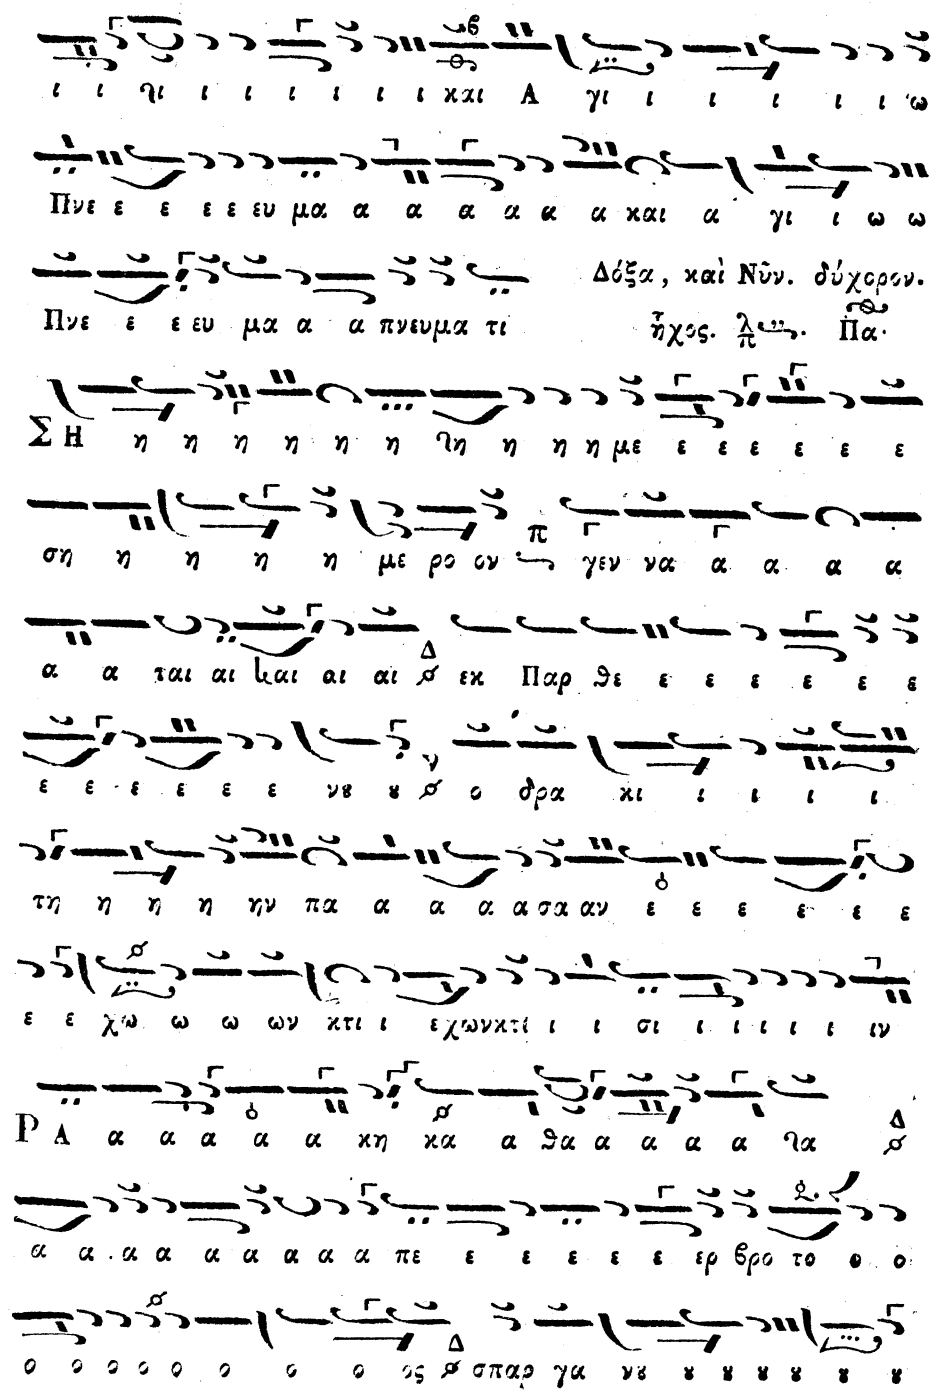 ι ι τι ι ι ι ι ι ι και Α γι ι ι ι ι ι ω
Πνε ε ε ε ε ευ μα α α α α α α και α γι ι ω ω
Πνε ε ε ευ μα α α πνευμα τι Δόξα, καὶ Νῦν. δύχορον.
ἦχος. λπ Πα.
ΣΗ η η η η η η τη η η η με ε ε ε ε ε ε
ση η η η η με ρο ον π γεν να α α α α
α α ται αι και αι αι Δ εκ Παρ θε ε ε ε ε ε ε
ε ε ε ε ε ε νȣ ȣ ν ο δρα κι ι ι ι ι
τη η η η ην πα α α α α σα αν ε ε ε ε ε ε
ε ε χω ω ω ων κτι ι εχωνκτι ι ι σι ι ι ι ι ι ιν
ΡΑ α α α α α κη κα α θα α α α α τα Δ
α α α α α α α α α πε ε ε ε ε ε ερ βρο το ο ο
ο ο ο ο ο ο ο ο ος Δ σπαρ γα νȣ ȣ ȣ ȣ ȣ ȣ ȣ